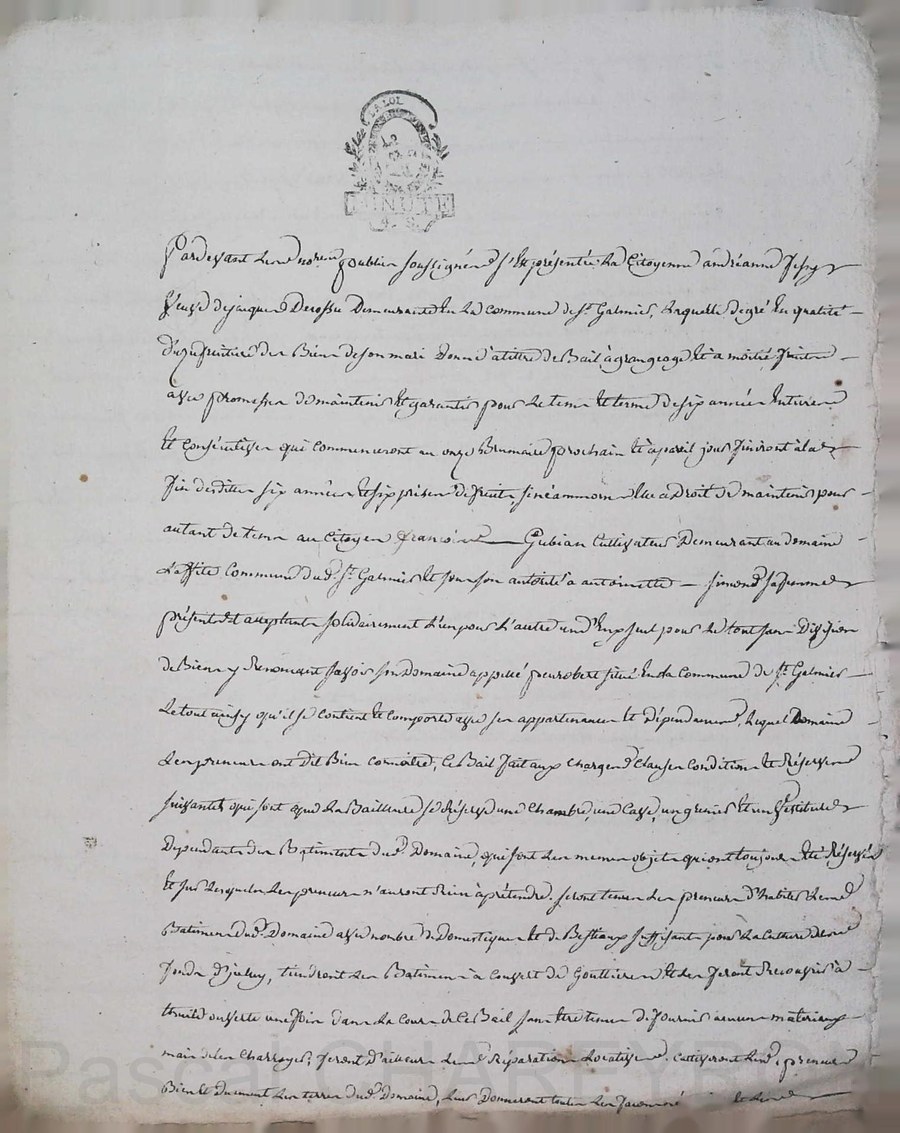 LA LOI
MINUTE
Pardevant Les notaires publics soussignés s'est présentée La Citoyenne andréanne
veuve de jacques Demeurante En La commune de St. Galmier, Laquelle de gré En qualité
d'usufruitière des Biens de son mari Donne à titre de Bail à grangeage Et à moitié fruits
avec promesse de maintenir Et garantir pour Le tems Et terme de six années Entières
Et consécutives qui commenceront au onze Brumaire prochain Et à pareil jour finiront à la
fin desdites six années Et six prises de fruits, si néammoins Elle a Droit de maintenir pour
autant de tems au Citoyen françois Gubian Cultivateur Demeurant au domaine
Commune dud. St. Galmier Et sous son autorité à antoinette simond sa femme
présents Et acceptants solidairement L'un pour L'autre un d'Eux seul pour Le tout sans Division
de Biens y Renonçant savoir son Domaine appellé situé En la Commune de St. Galmier
Le tout ainsy qu'il se contient Et comporte avec ses appartenances Et Dépendances, Lequel Domaine
Les preneurs ont Dit Bien connoitre, ce Bail fait aux charges Clauses Conditions Et Réserves
suivantes qui sont que La Bailleuse se Réserve une Chambre, une Cave, un grenier Et un
Dépendants des Batiments dud. Domaine, qui sont Les mêmes objets qui ont toujours Eté Réservés
Et sur Lesquels Les preneurs n'auront Rien à prétendre. seront tenus Les preneurs d'habiter Les
Batimens dud. Domaine avec nombre de Domestiques Et de Bestiaux suffisants pour La Culture Des
fonds D'iceluy, tiendront Les Batimens à Couvert de Gouttières Et Les feront Recouvrir à
thuile ouverte une fois dans Le Cours de Ce Bail sans Etre tenus de fournir aucuns materiaux
mais Les Charroyer, feront D'ailleurs Les Réparations Locatives. Cultiveront Les preneurs
Bien Et Duement Les terres dud. Domaine, Leur Donneront toutes Les façons
Pascal CHAREYRON